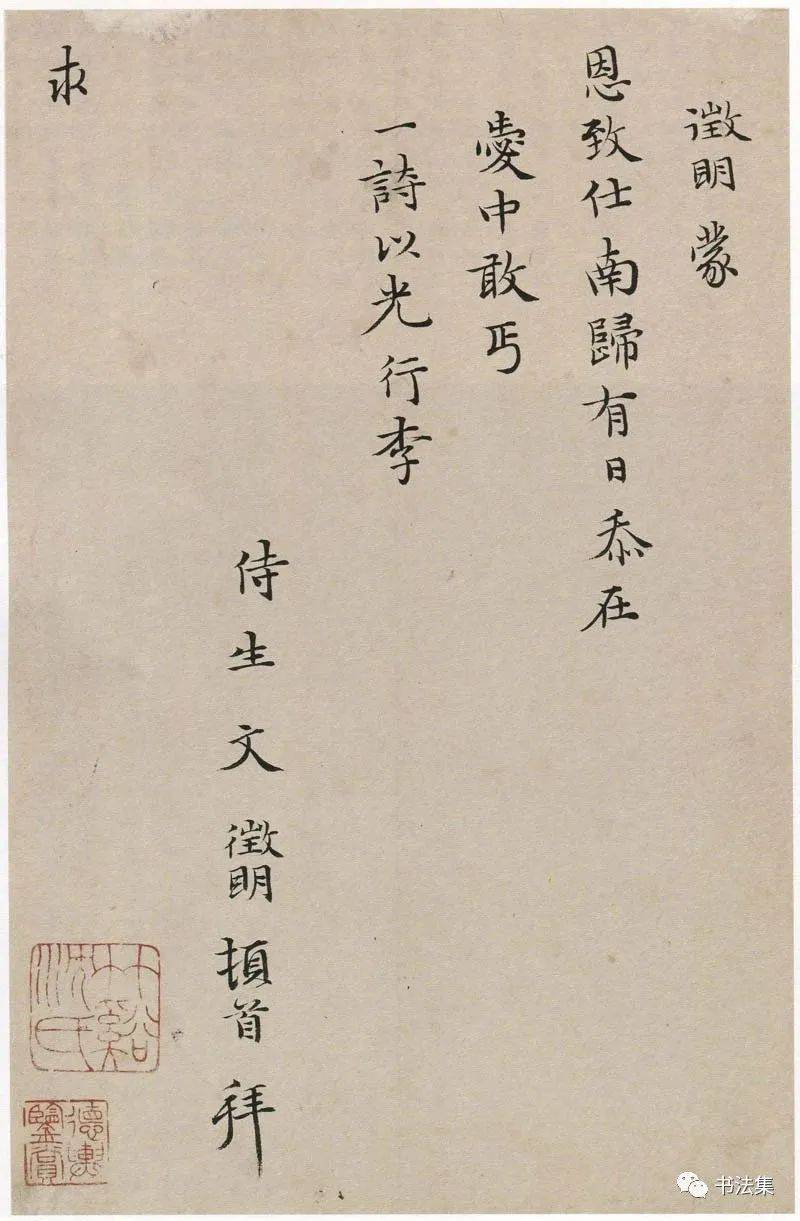 徵明蒙
恩致仕南歸有日忝在
愛中敢丐
一詩以光行李
侍生文徵明頓首拜
求
竹谿沈氏
德輿鑒賞
书法集